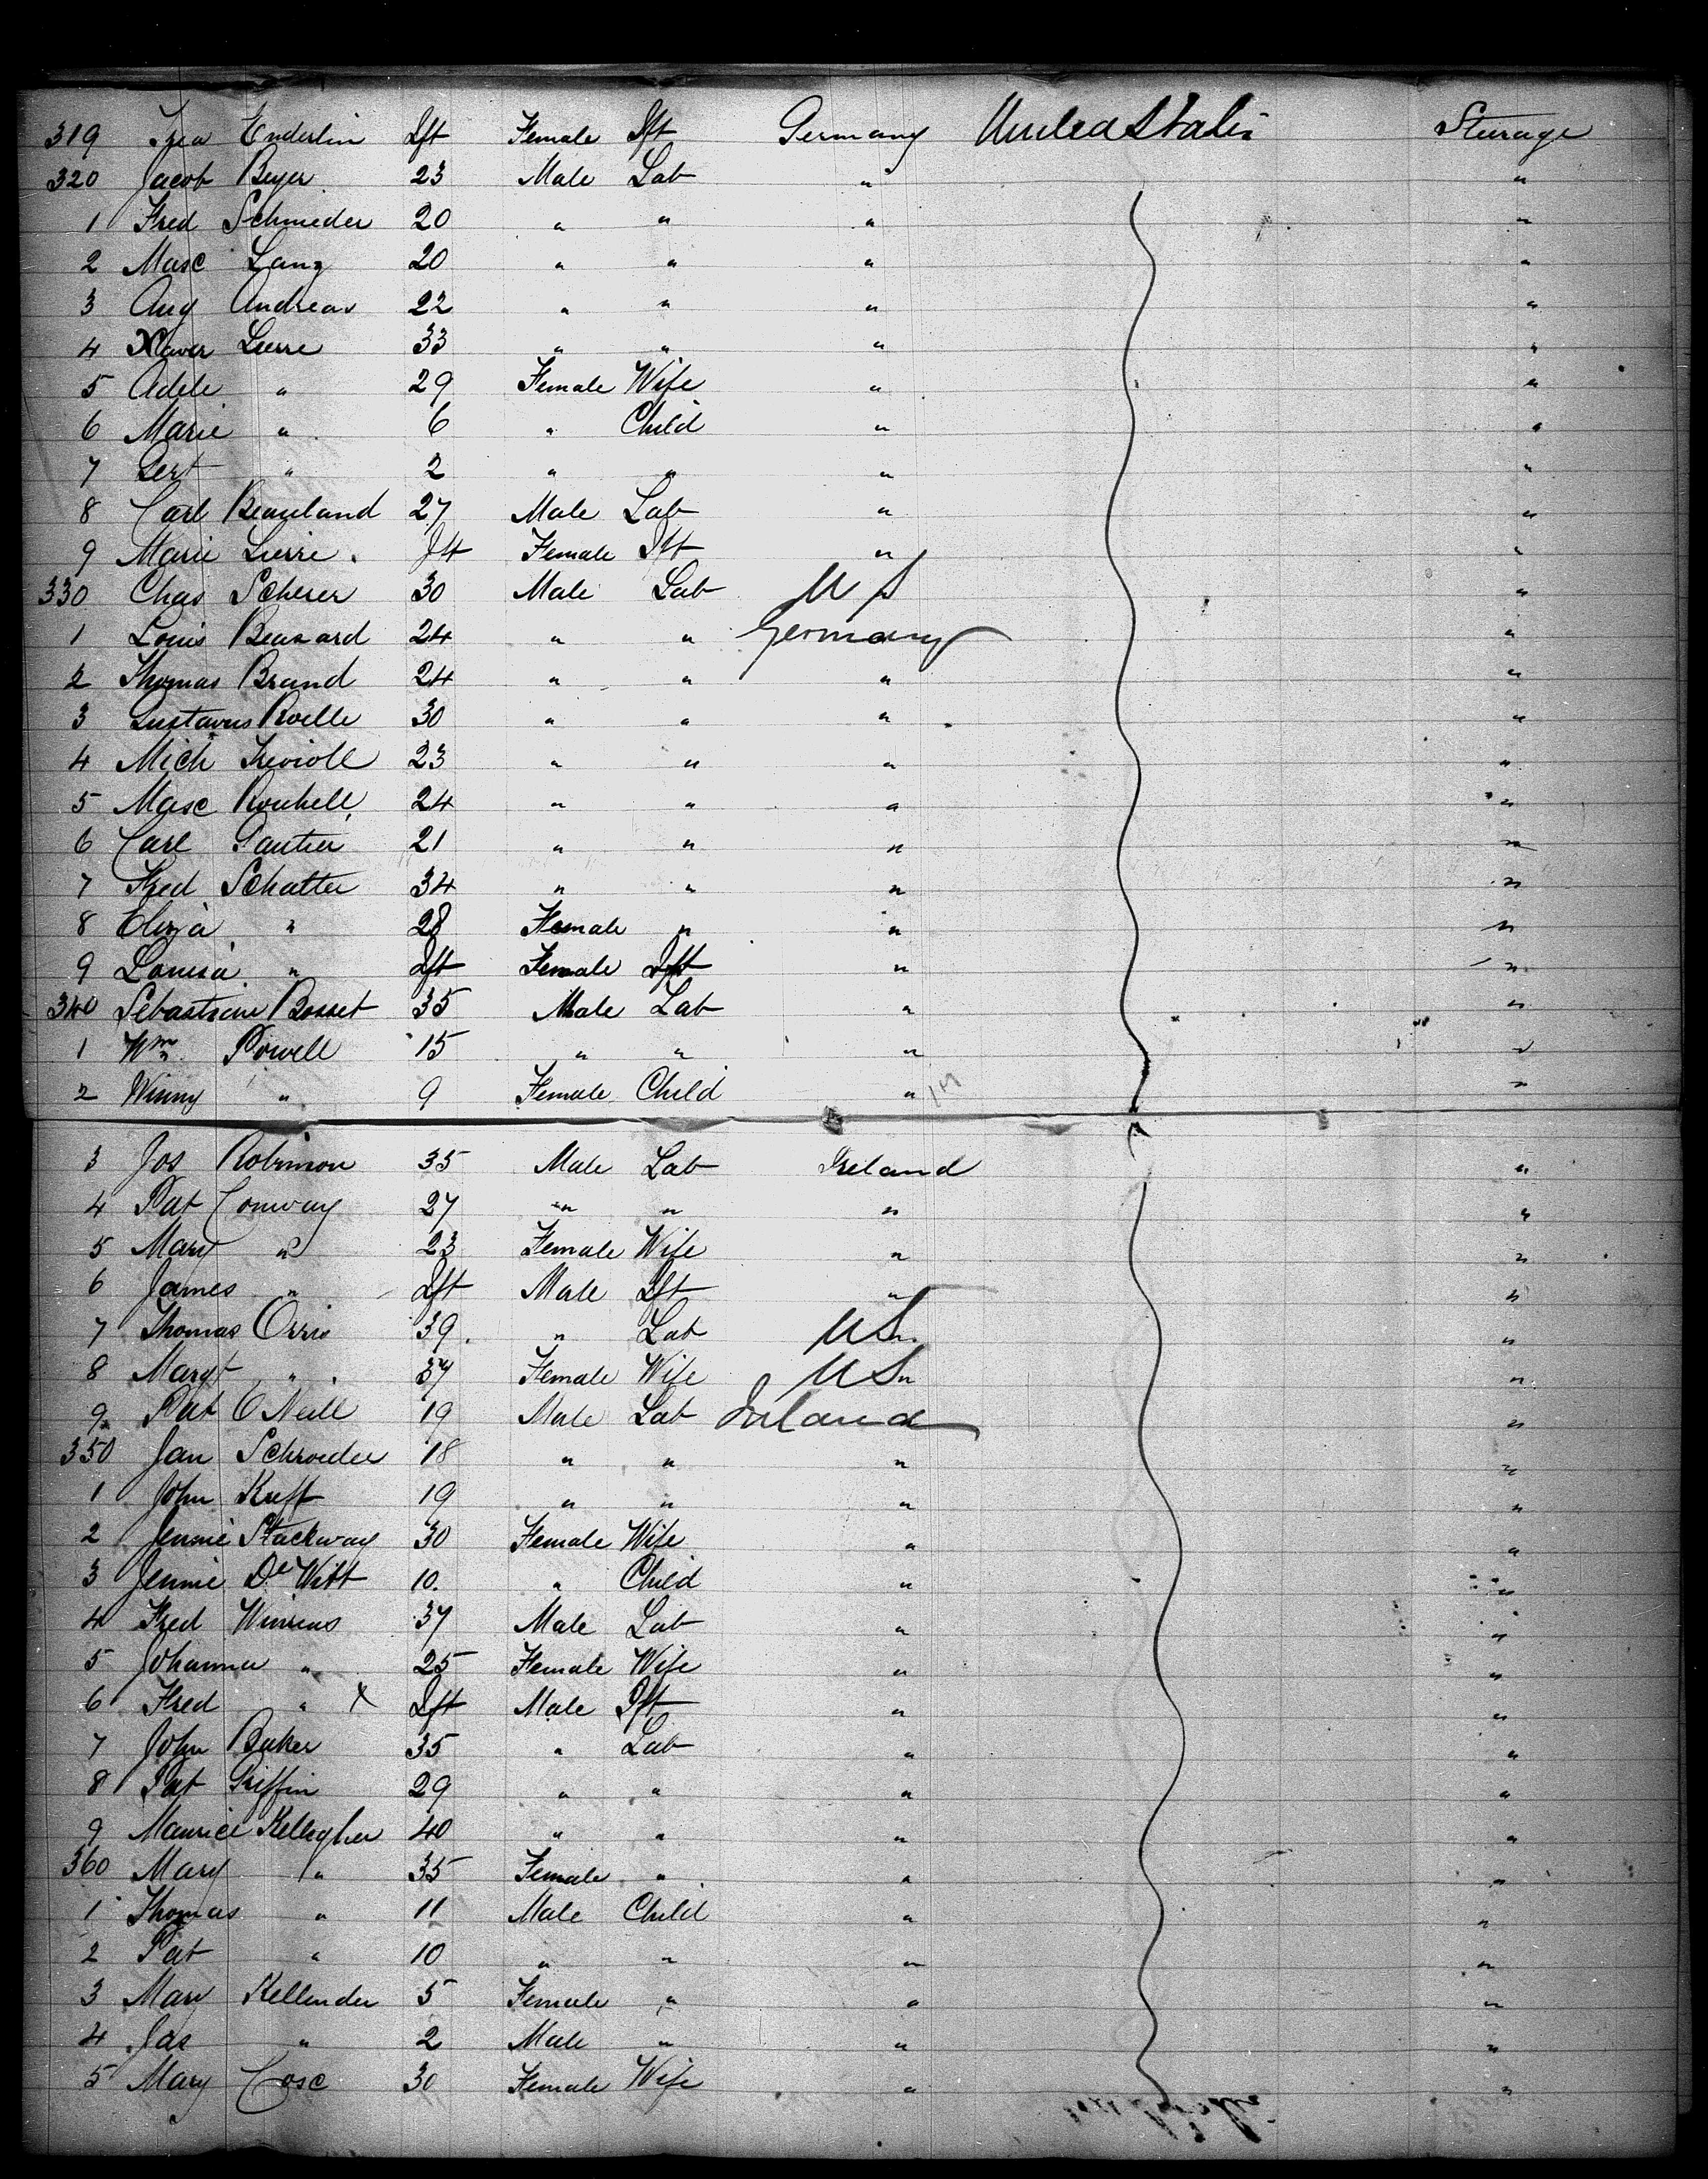 319 Enderlin Ift Female Ift Germany United States Sturage
320 Jacob Beyer 23 Male Lab " "
1 Fred Schmeder 20 " " " "
2 Masc Lang 20 " " " "
3 Aug Andreas 22 " " " "
4 Xaver Lierre 33 " " " "
5 Adele " 29 Female Wife " "
6 Marie " 6 " Child " "
7 " 2 " " " "
8 Carl 27 Male Lab " "
9 Marie Lierre Ift Female Ift " "
330 Chas Scherer 30 Male Lab U S "
1 Louis 24 " " Germany "
2 Thomas Brand 24 " " " "
3 Gustavus Roelle 30 " " " "
4 Mich 23 " " " "
5 Masc 24 " " " "
6 Carl Gautier 21 " " " "
7 Fred Schatter 34 " " " "
8 " 28 Female " " "
9 Louisa " Ift Female Ift " "
340 Sebastian Bosset 35 Male Lab " "
1 Wm Powell 15 " " " "
2 Winny " 9 Female Child " "
3 Jos Robinson 35 Male Lab Ireland "
4 Pat Conway 27 " " " "
5 Mary " 23 Female Wife " "
6 James " Ift Male Ift " "
7 Thomas Orris 39 " Lab U S "
8 Margt " 37 Female Wife U S "
9 Pat O'Neill 19 Male Lab Ireland "
350 Jan Schroeder 18 " " " "
1 John Kuft 19 " " " "
2 Jennie Stackway 30 Female Wife " "
3 Jennie De Witt 10 " Child " "
4 Fred 37 Male Lab " "
5 Johanna " 25 Female Wife " "
6 Fred " X Ift Male Ift " "
7 John Baker 35 " Lab " "
8 Pat Griffin 29 " " " "
9 Maurice Kellegher 40 " " " "
360 Mary " 35 Female " " "
1 Thomas " 11 Male Child " "
2 Pat " 10 " " " "
3 Mary Kellender 5 Female " " "
4 Jas " 2 Male " " "
5 Mary Cosc 30 Female Wife " "